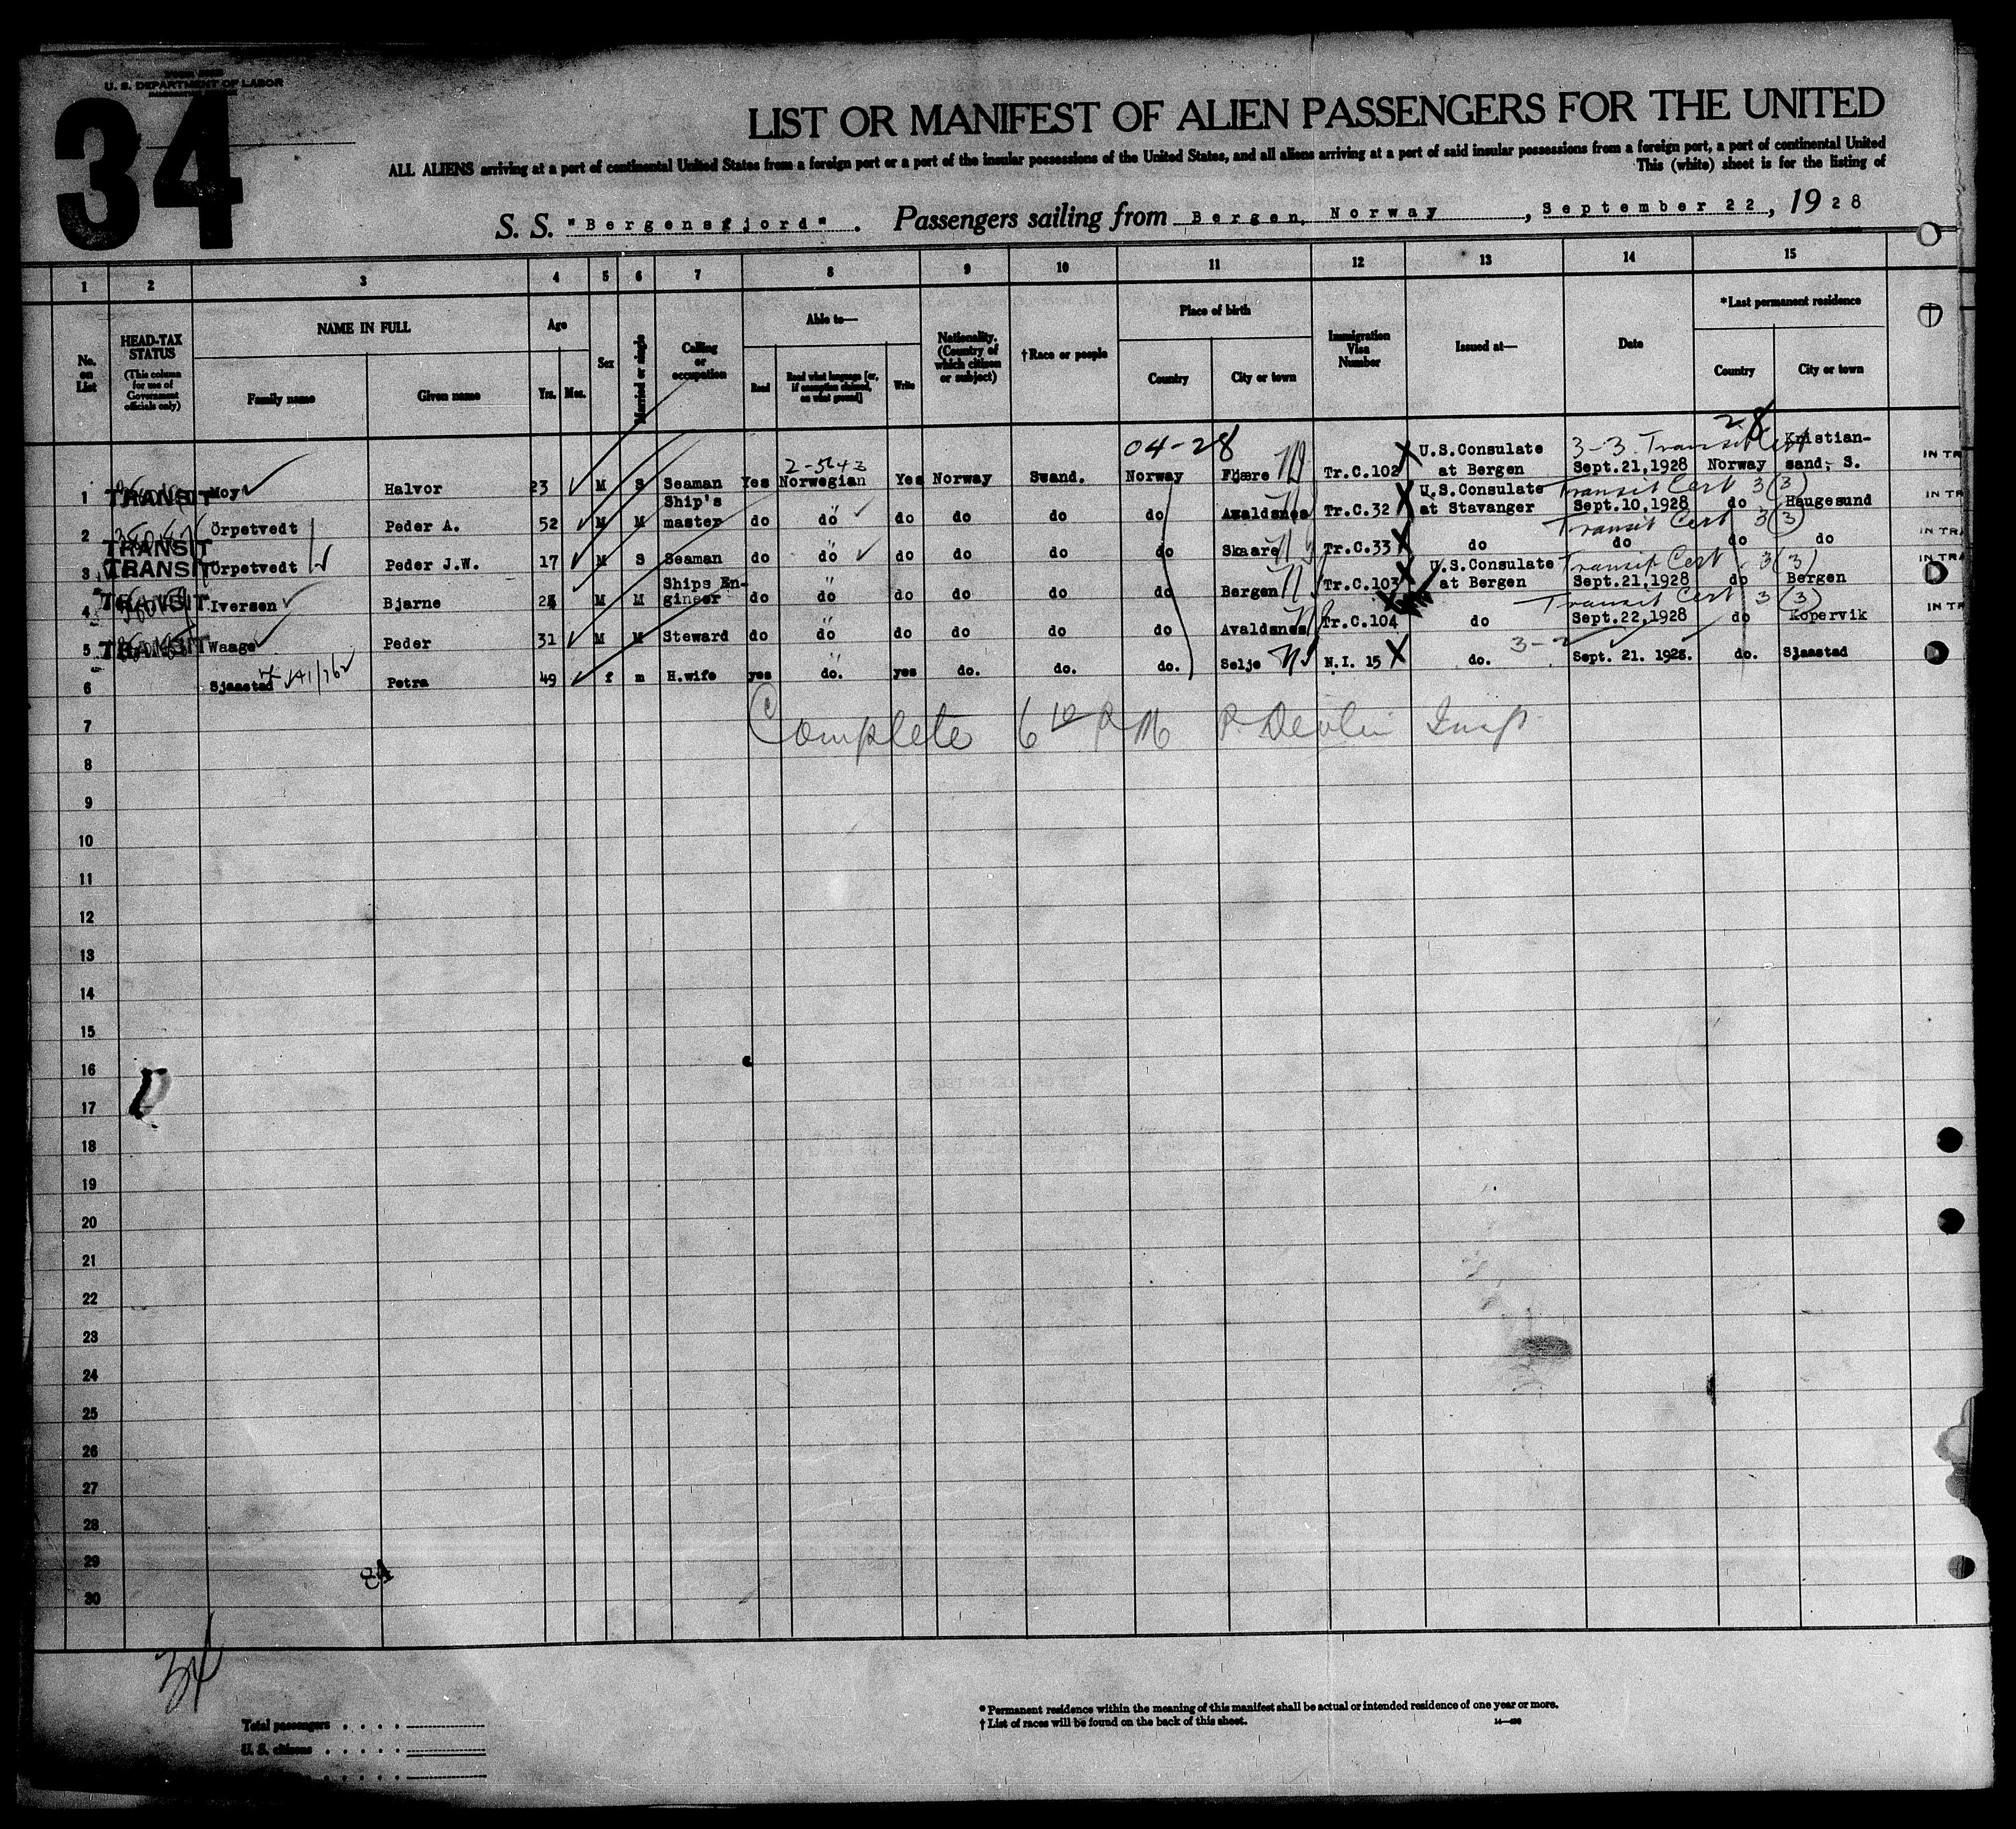 U. S. DEPARTMENT OF LABOR
34
LIST OR MANIFEST OF ALIEN PASSENGERS FOR THE UNITED
ALL ALIENS arriving at a port of continental United States from a foreign port or a port of the insular possessions of the United States, and all aliens arriving at a port of said insular possessions from a foreign port, a port of continental United
This (white) sheet is for the listing of
S. S. "Bergensfjord". Passengers sailing from Bergen, Norway, September 22, 1928
1 2 3 4 5 6 7 8 9 10 11 12 13 14 15
No. on List
HEAD-TAX STATUS (This column for use of Government officials only)
NAME IN FULL
Family name Given name
Age
Yrs. Mos.
Sex
Married or single
Calling or occupation
Able to—
Read Read what language [or, if exemption claimed, on what ground] Write
Nationality. (Country of which citizen or subject)
†Race or people
Place of birth
Country City or town
Immigration Visa Number
Issued at—
Date
*Last permanent residence
Country City or town
04-28 28
2-5643 3-3. Transit Cert
1 TRANSIT Moy Halvor 23 M S Seaman Yes Norwegian Yes Norway Swand. Norway Fjære Tr.C.102 U.S.Consulate at Bergen Sept.21,1928 Norway Kristian-sand, S. IN TR
Transit Cert 3(3)
2 TRANSIT Örpetvedt Peder A. 52 M M Ship's master do do do do do do Avaldsnes Tr.C.32 U.S.Consulate at Stavanger Sept.10,1928 do Haugesund IN TR
Transit Cert 3(3)
3 TRANSIT Örpetvedt Peder J.W. 17 M S Seaman do do do do do do Skaare Tr.C.33 do do do do IN TR
Transit Cert 3(3)
4 TRANSIT Iversen Bjarne M M Ships Engineer do do do do do do Bergen Tr.C.103 U.S.Consulate at Bergen Sept.21,1928 do Bergen IN TRA
Transit Cert 3(3)
5 TRANSIT Waage Peder 31 M M Steward do do do do do do Avaldsnes Tr.C.104 do Sept.22,1928 do Kopervik IN TR
6 Sjaastad Petra 49 f m H.wife yes do. yes do. do. do. Selje N.I. 15 do. Sept. 21. 1928. do. Sjaastad
7 Complete 6 10 PM P. Devlin Insp.
8
9
10
11
12
13
14
15
16
17
18
19
20
21
22
23
24
25
26
27
28
29
30
34
Total passengers
U. S. citizens
* Permanent residence within the meaning of this manifest shall be actual or intended residence of one year or more.
† List of races will be found on the back of this sheet.